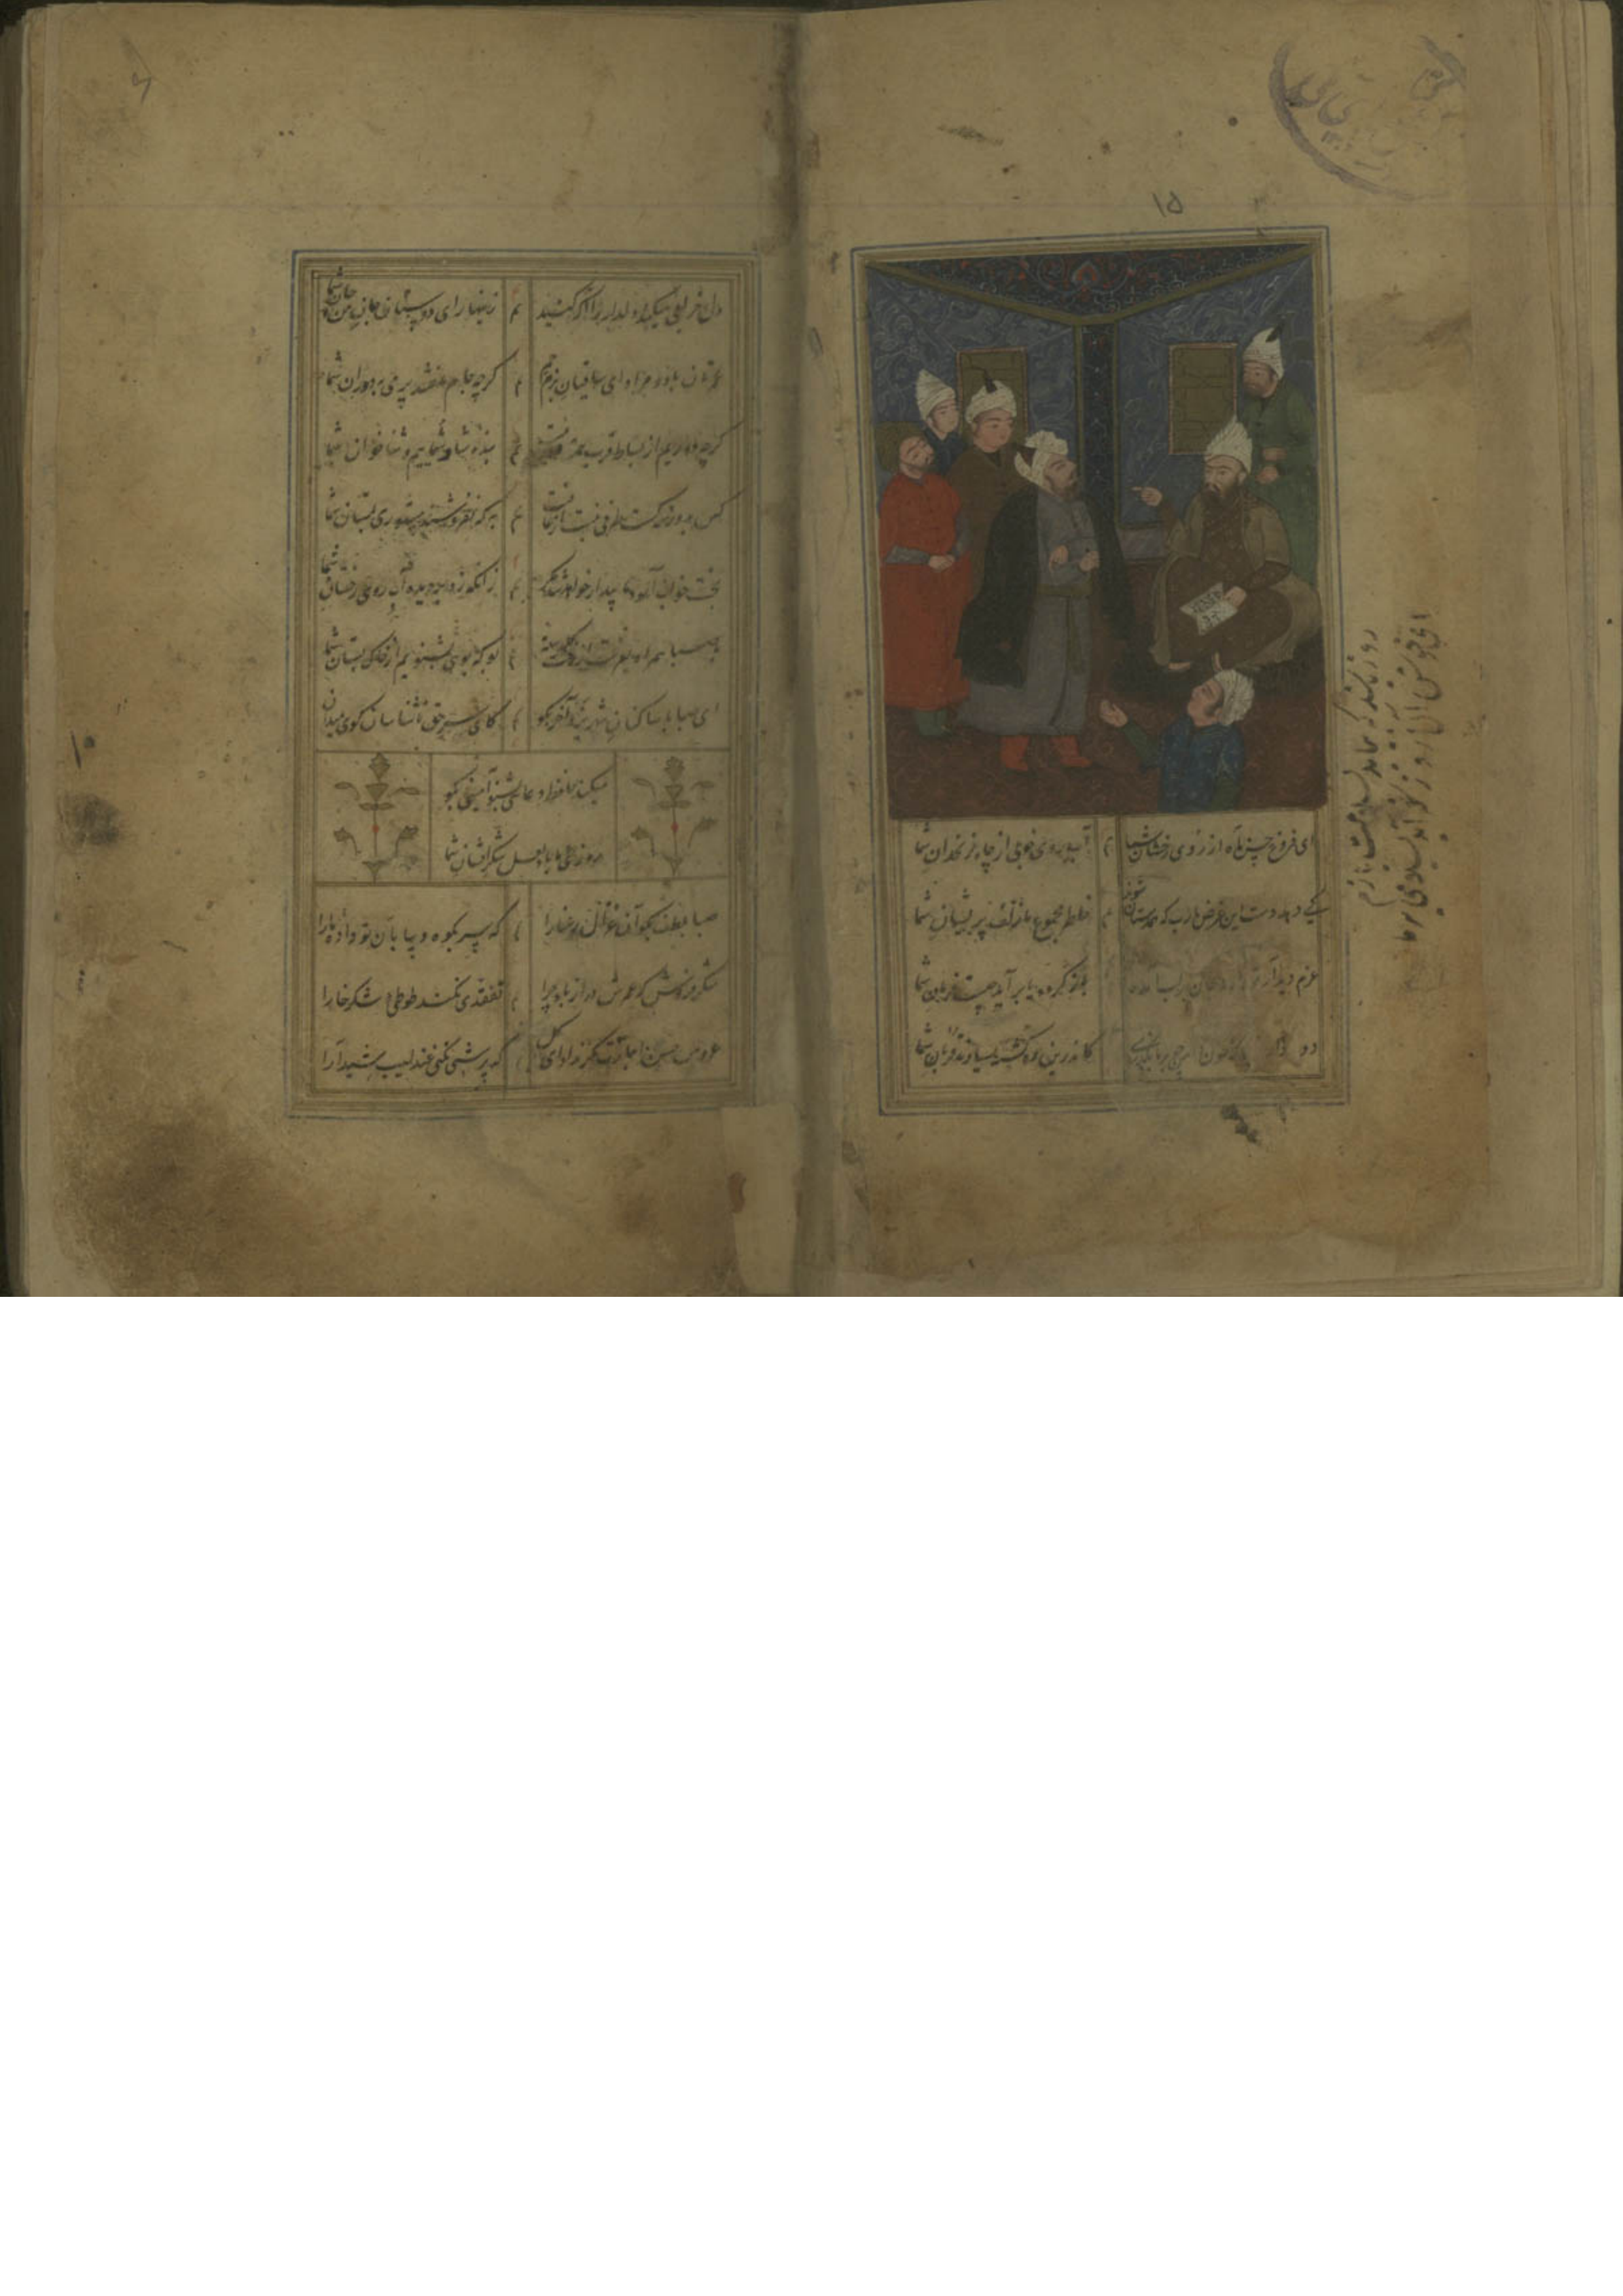 ۱۵
ای فروغ حسن ماه از روی رخشان شما
آب روی خوبی از چاه زنخدان شما
کی دهد دست این غرض یارب که همدستان شوند
خاطر مجموع ما زلف پریشان شما
عزم دیدار تو دارد جان بر لب آمده
باز گردد یا برآید چیست فرمان شما
دور دار از خاک و خون چو بر ما بگذری
کاندرین ره کشته بسیارند قربان شما
روز
دل خرابی میکند دلدار را آگه کنید
زینهار ای دوستان جان من و جان شما
عمرتان باد و مراد ای ساقیان بزم جم
گرچه جام ما نشد پر می بدوران شما
گرچه دوریم از بساط قرب همت دور نیست
بنده شاه شماییم و ثنا خوان شما
کس بدور نرگست طرفی نبست از عافیت
به که نفروشند مستوری بمستان شما
بخت خواب آلود ما بیدار خواهد شد مگر
زانکه زد بر دیده آب روی رخشان شما
با صبا همراه بفرست از رخت گلدسته
بو که بویی بشنویم از خاک بستان شما
ای صبا با ساکنان شهر یزد آخر بگو
کای سر حق ناشناسان گوی میدان شما
میکند حافظ دعایی بشنو آمینی بگو
روزی ما باد لعل شکر افشان شما
صبا بلطف بگو آن غزال رعنا را
که سر بکوه و بیابان تو داده ما را
شکر فروش که عمرش دراز باد چرا
تفقدی نکند طوطی شکر خا را
غرور حسن اجازت مگر نداد ای گل
که پرسشی نکنی عندلیب شیدا را
۱۰